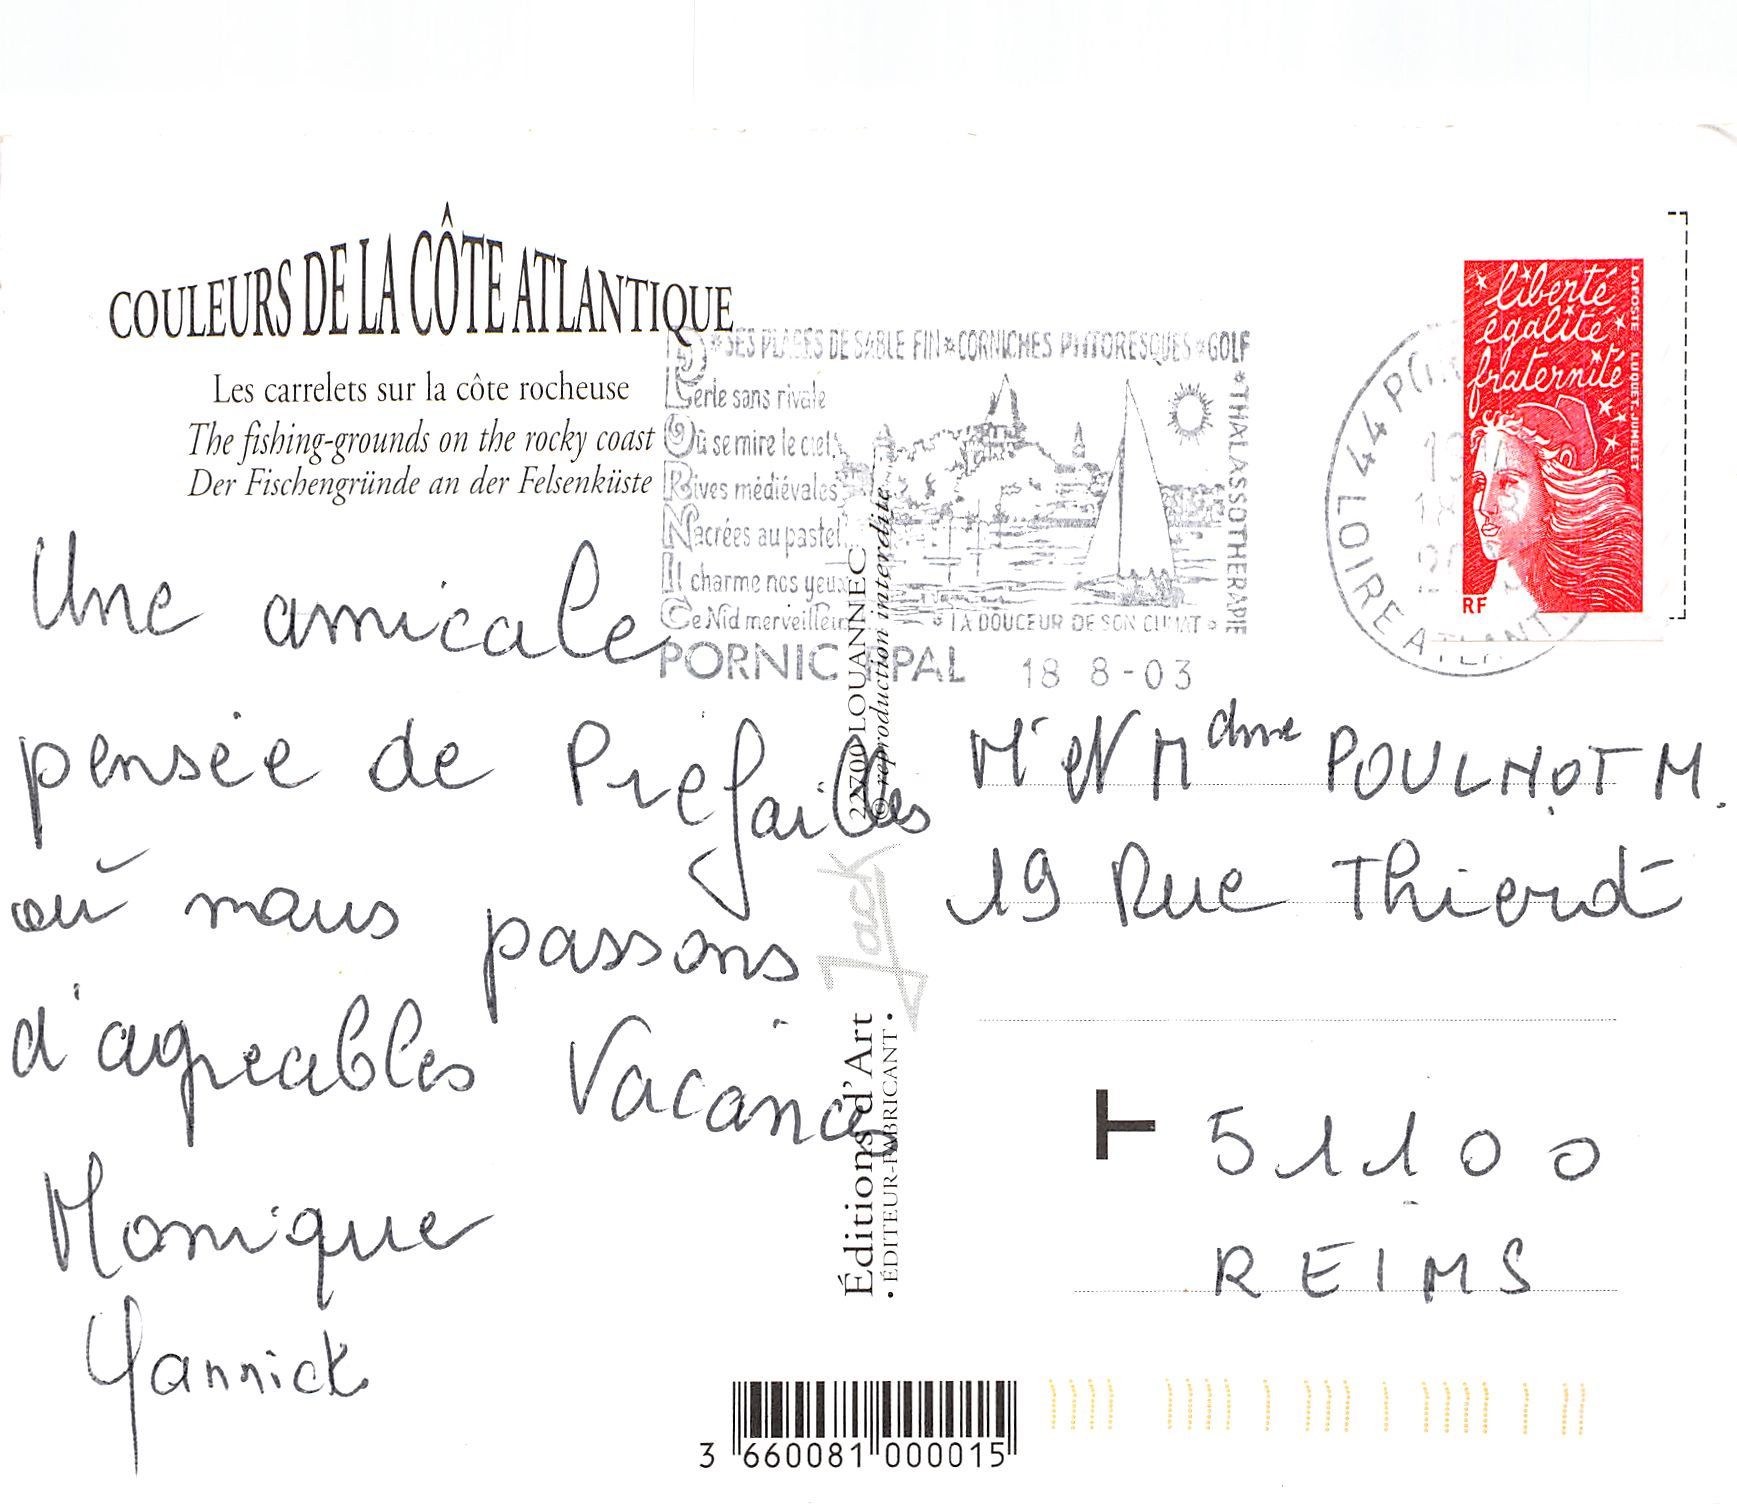 COULEURS DE LA CÔTE ATLANTIQUE
Les carrelets sur la côte rocheuse
The fishing-grounds on the rocky coast
Der Fischengründe an der Felsenküste
Une amicale
pensée de Préfailles
où nous passons
d'agreables Vacances
Monique
Yannick
* SES PLAGES DE SABLE FIN * CORNICHES PITTORESQUES * GOLF
* THALASSOTHERAPIE
* LA DOUCEUR DE SON CLIMAT *
Perle sans rivale
Où se mire le ciel,
Rives médiévales
Nacrées au pastel,
Il charme nos yeux
Ce Nid merveilleux
PORNIC PPAL 18 8-03
44 PORNIC
18
LOIRE ATLANT
liberté
égalité
fraternité
LA POSTE LUQUET-JUMELLET
RF
22700 LOUANNEC
© reproduction interdite
Jack
Éditions d'Art
• ÉDITEUR-FABRICANT •
Mr et Mdme POULNOT M.
19 Rue Thierot
T
51100
REIMS
3 660081 000015